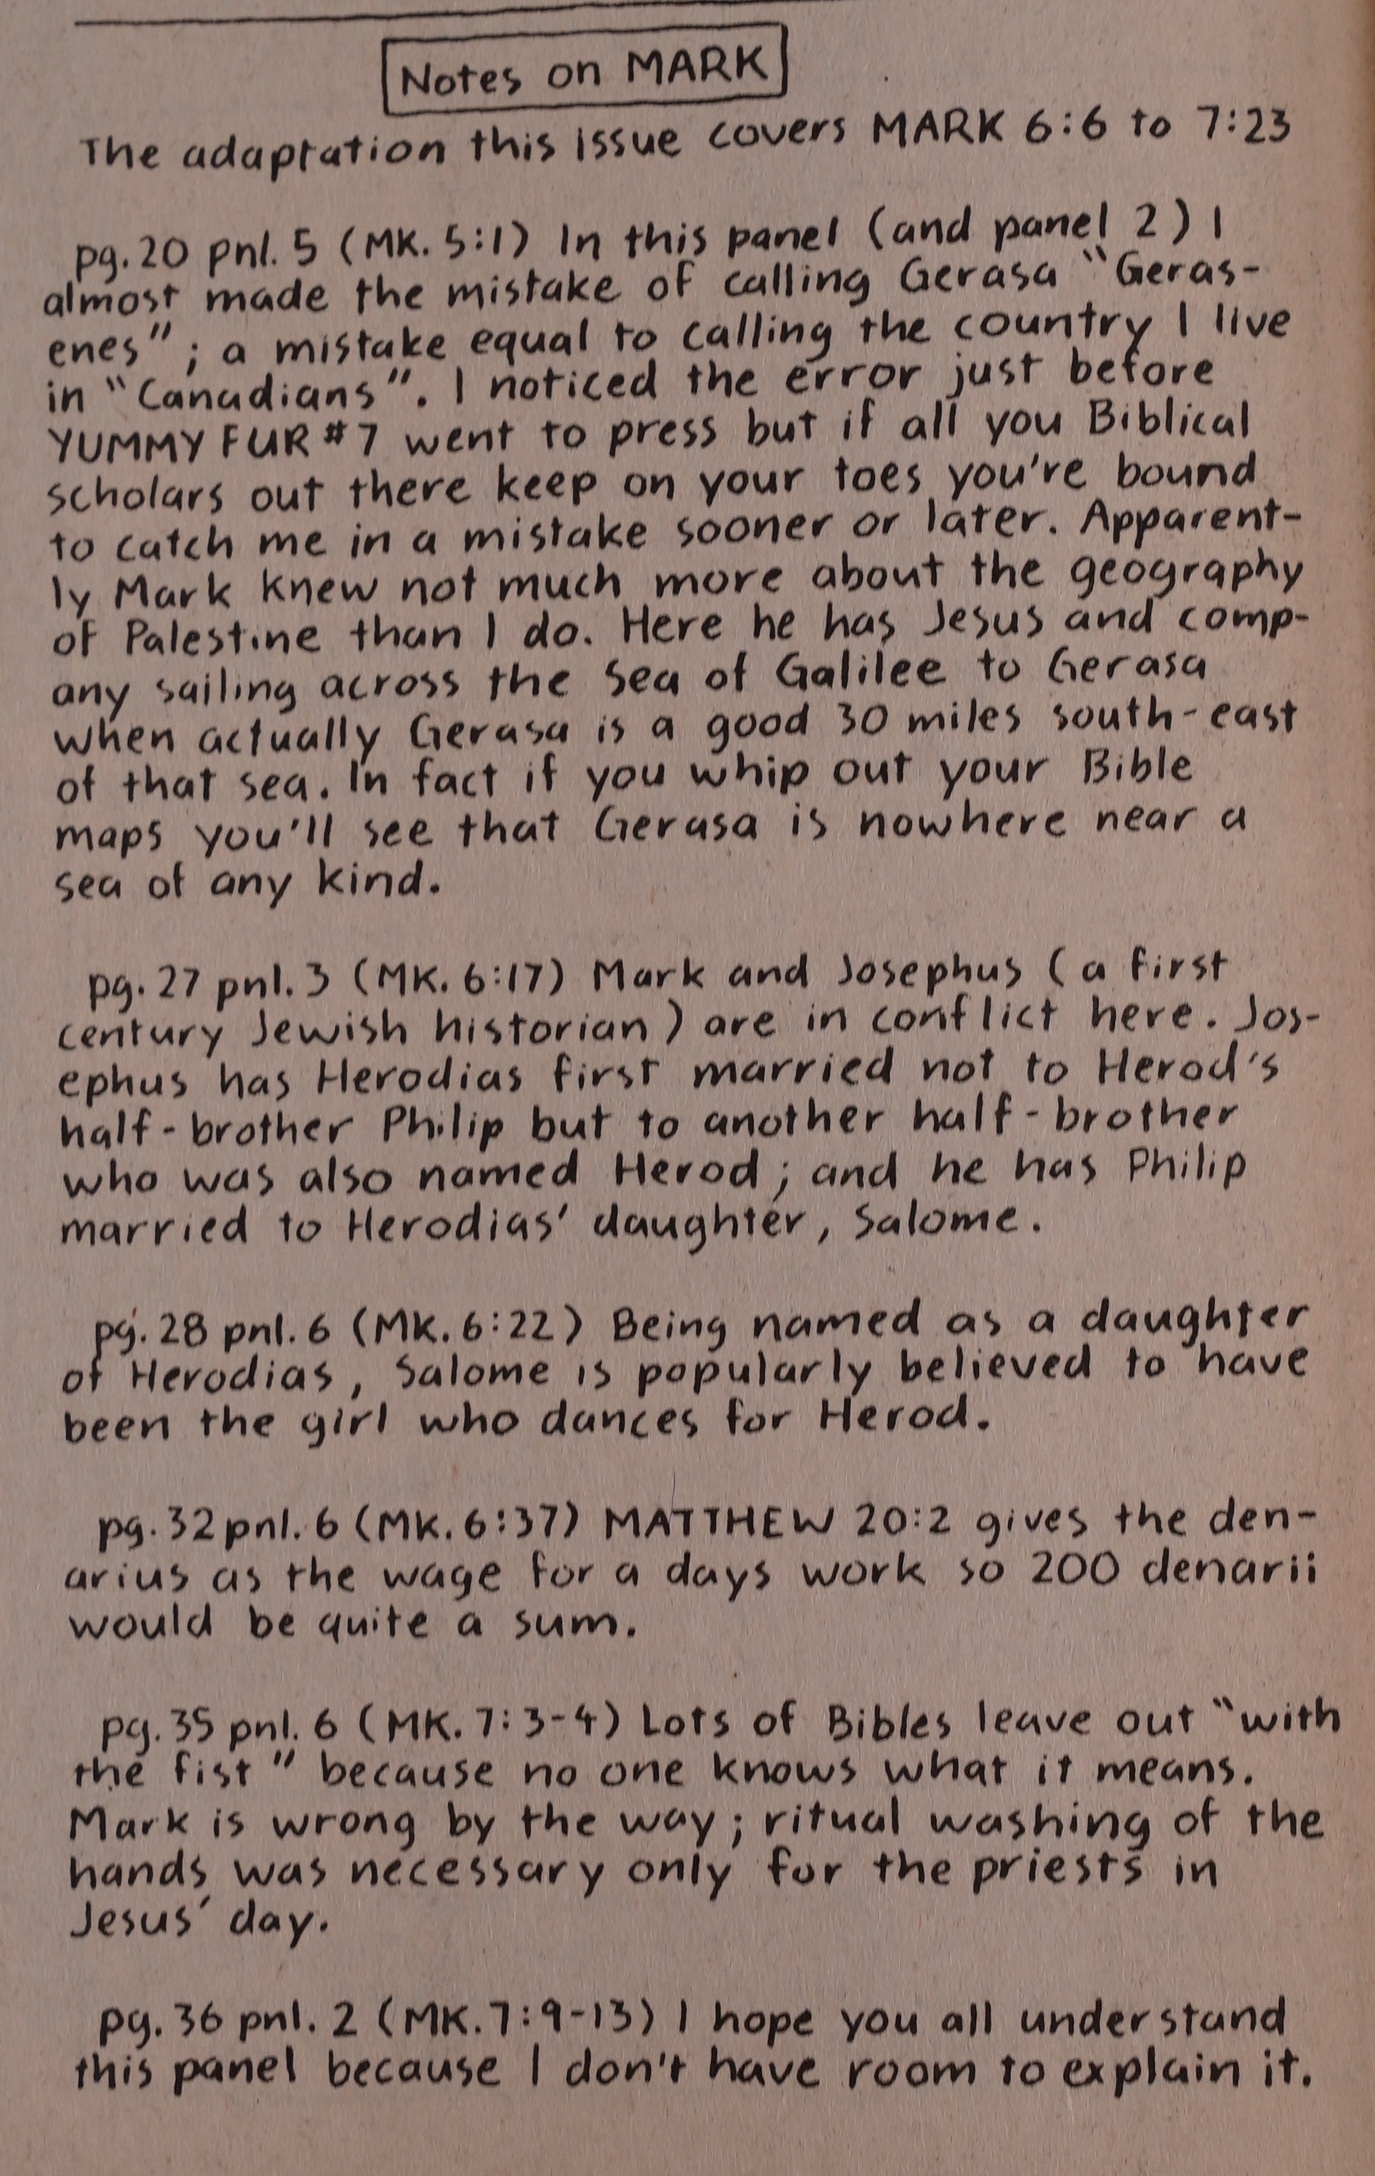 Notes on MARK
The adaptation this issue covers MARK 6:6 to 7:23
pg. 20 pnl. 5 (MK. 5:1) In this panel (and panel 2) I
almost made the mistake of calling Gerasa "Geras-
enes"; a mistake equal to calling the country I live
in "Canadians". I noticed the error just before
YUMMY FUR #7 went to press but if all you Biblical
scholars out there keep on your toes you're bound
to catch me in a mistake sooner or later. Apparent-
ly Mark knew not much more about the geography
of Palestine than I do. Here he has Jesus and comp-
any sailing across the Sea of Galilee to Gerasa
when actually Gerasa is a good 30 miles south-east
of that sea. In fact if you whip out your Bible
maps you'll see that Gerasa is nowhere near a
sea of any kind.
pg. 27 pnl. 3 (MK. 6:17) Mark and Josephus (a first
century Jewish historian) are in conflict here. Jos-
ephus has Herodias first married not to Herod's
half-brother Philip but to another half-brother
who was also named Herod; and he has Philip
married to Herodias' daughter, Salome.
pg. 28 pnl. 6 (MK. 6:22) Being named as a daughter
of Herodias, Salome is popularly believed to have
been the girl who dances for Herod.
pg. 32 pnl. 6 (MK. 6:37) MATTHEW 20:2 gives the den-
arius as the wage for a days work so 200 denarii
would be quite a sum.
pg. 35 pnl. 6 (MK. 7:3-4) Lots of Bibles leave out "with
the fist" because no one knows what it means.
Mark is wrong by the way; ritual washing of the
hands was necessary only for the priests in
Jesus' day.
pg. 36 pnl. 2 (MK. 7:9-13) I hope you all understand
this panel because I don't have room to explain it.